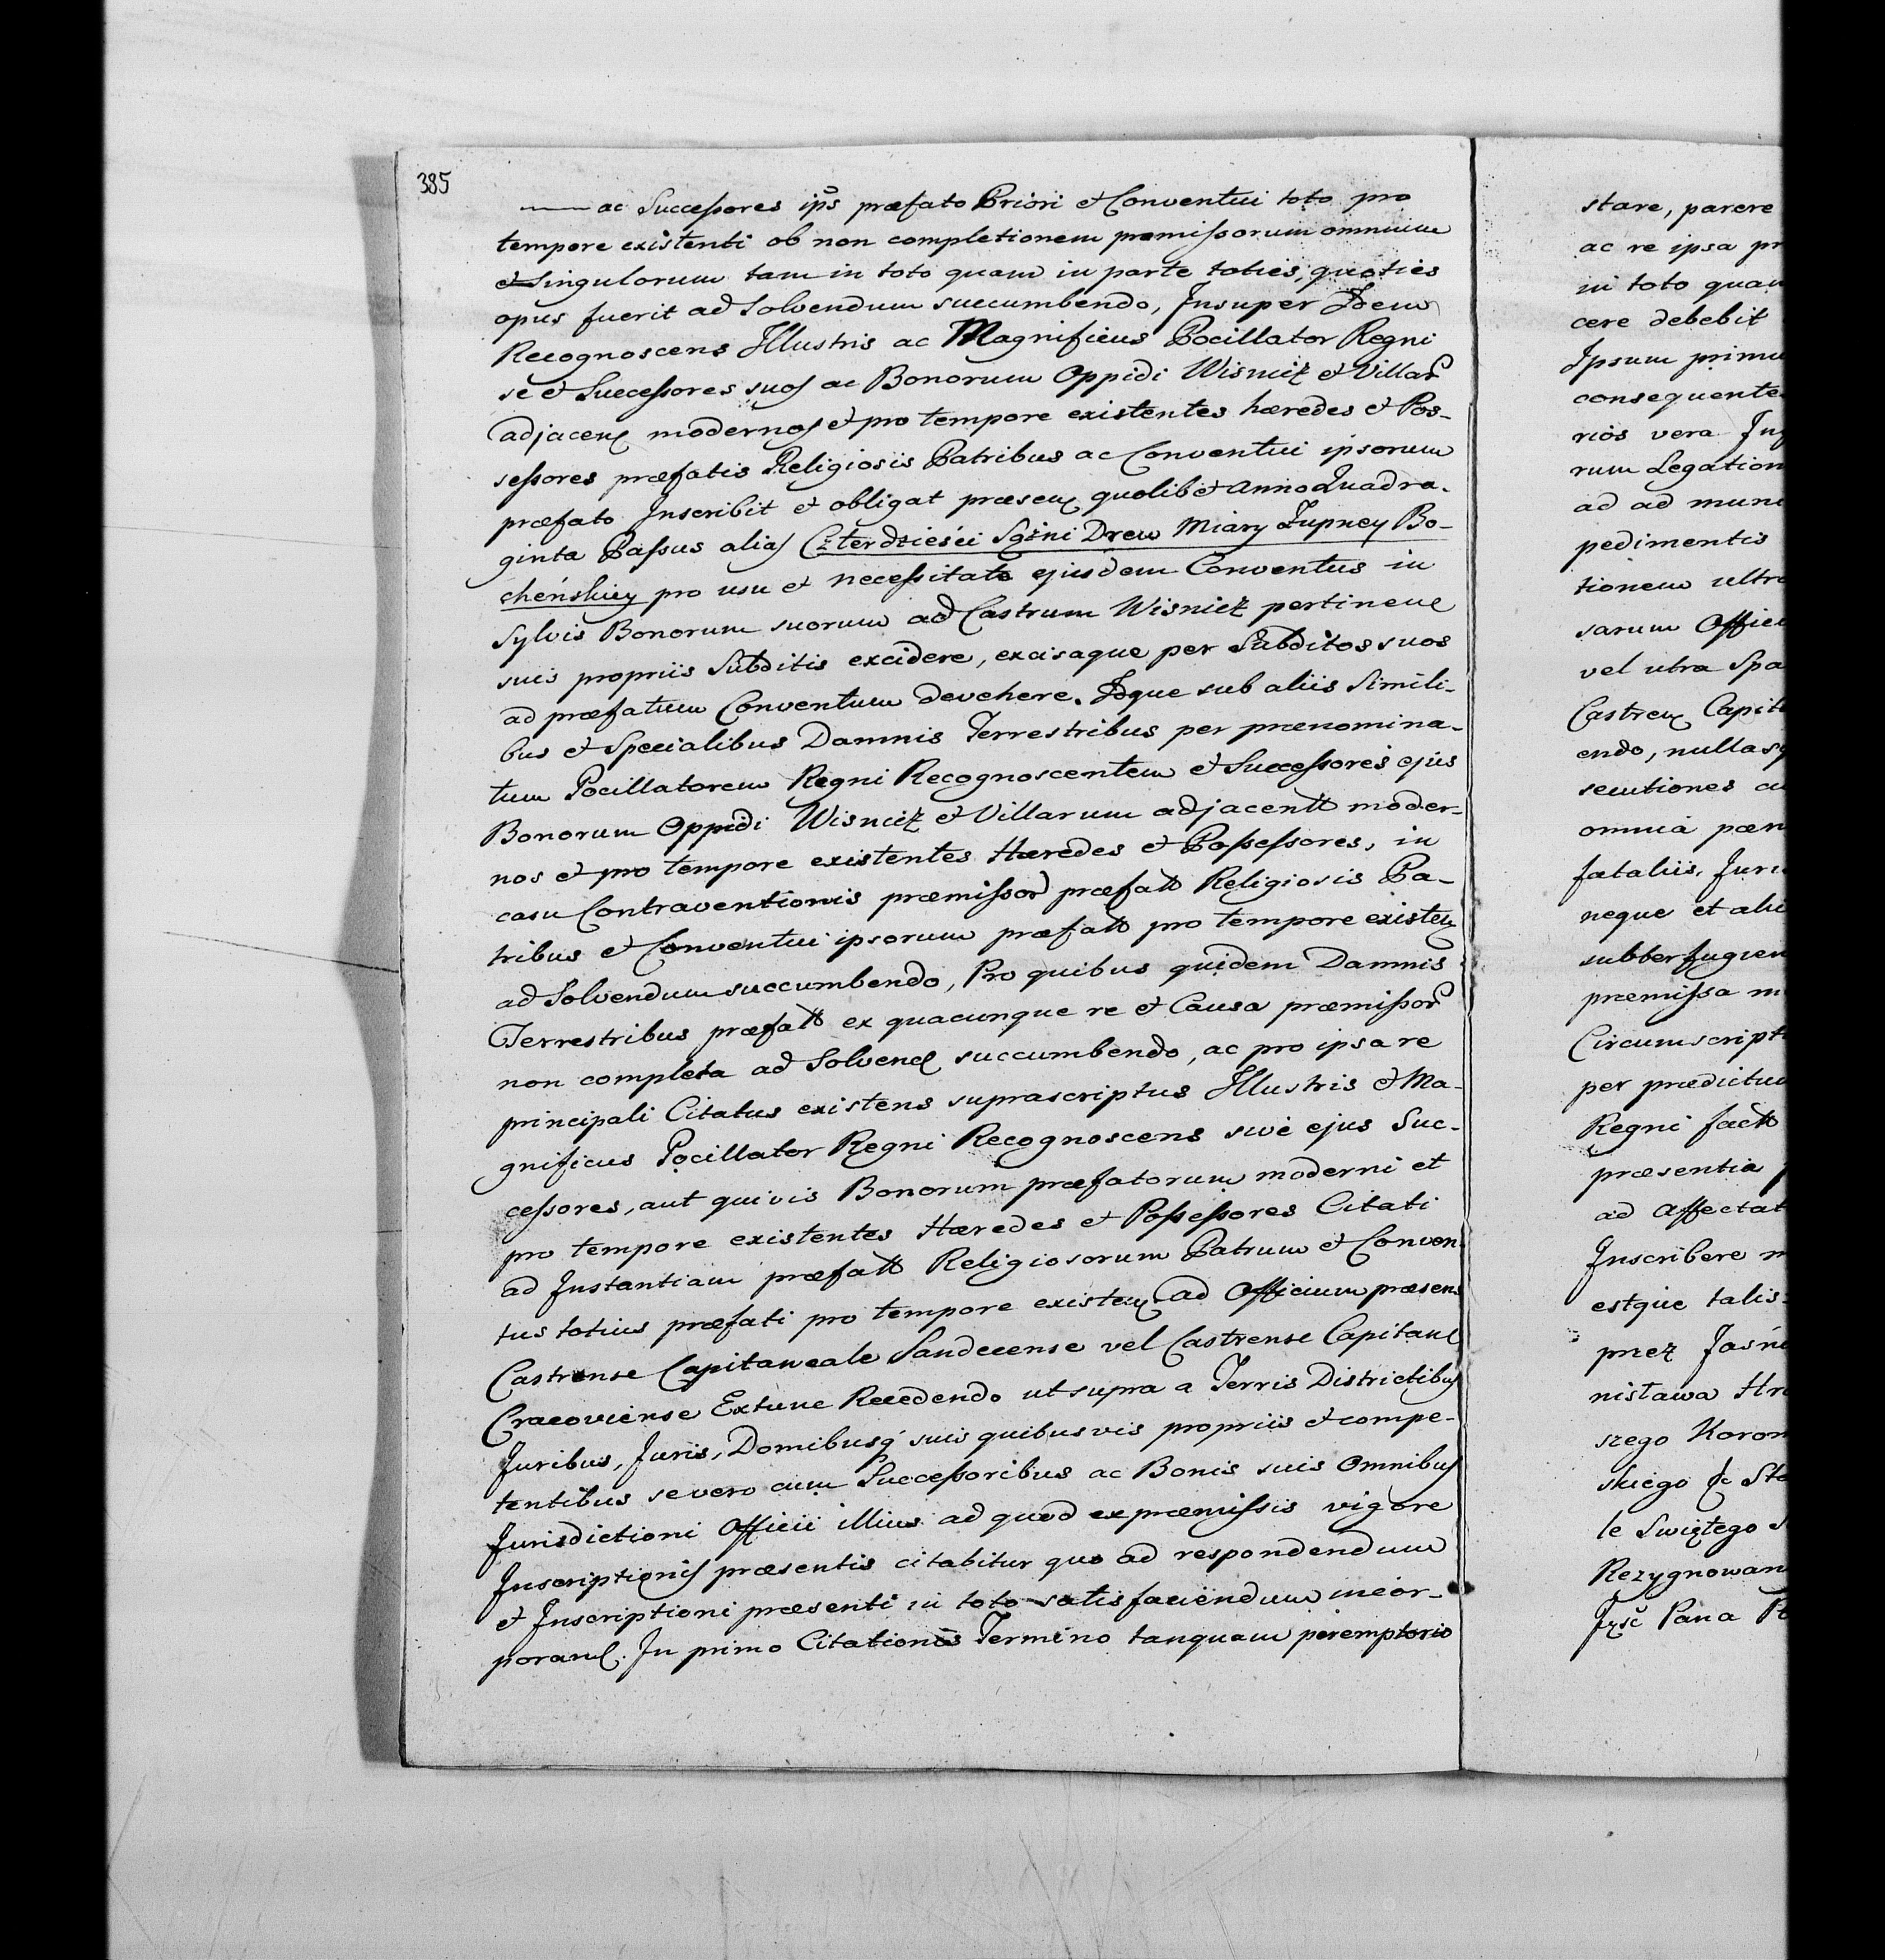 385
ac Successores ips præfato Priori et Conventui toto pro
tempore existenti ob non completionem premissorum omnium
et Singulorum tam in toto quam in parte toties, quoties
opus fuerit ad Solvendum succumbendo, Insuper Idem
Recognoscens Illustris ac Magnificus Pocillator Regni
se et Successores suos ac Bonorum Oppidi Wisnicz et Villar
adjacen modernos et pro tempore existentes hæredes et Pos-
sessores præfatis Religiosis Patribus ac Conventui ipsorum
præfato Inscribit et obligat præsen quolibet Anno Quadra-
ginta Passus alias Czterdzieści Sążni Drew Miary Żupney Bo-
cheńskiey pro usu et necessitate ejusdem Conventus in
Sylvis Bonorum suorum ad Castrum Wisnicz pertinen
suis propriis Subditis excidere, excisaque per Subditos suos
ad præfatum Conventum devehere. Idque sub aliis Simili-
bus et Specialibus Damnis Terrestribus per prænomina-
tum Pocillatorem Regni Recognoscentem et Successores ejus
Bonorum Oppidi Wisnicz et Villarum adjacentt moder-
nos et pro tempore existentes Hæredes et Possessores, in
casu Contraventionis præmissor præfatt Religiosis Pa-
tribus et Conventui ipsorum præfatt pro tempore existen
ad Solvendum succumbendo, Pro quibus quidem Damnis
Terrestribus præfatt ex quacunque re et Causa præmissor
non completa ad Solvend succumbendo, ac pro ipsa re
principali Citatus existens suprascriptus Illustris et Ma-
gnificus Pocillator Regni Recognoscens sive ejus Suc-
cessores, aut quivis Bonorum præfatorum moderni et
pro tempore existentes Hæredes et Possessores Citati
ad Instantiam præfatt Religiosorum Patrum et Conven-
tus totius præfati pro tempore existen ad Officium præsens
Castrense Capitaneale Sandecense vel Castrense Capitanl
Cracoviense Extunc Recedendo ut supra a Terris Districtibus
Juribus, Juris, Domibusq suis quibusvis propriis et compe-
tentibus se vero cum Successoribus ac Bonis suis Omnibus
Jurisdictioni Officii illius ad quod ex præmissis vigore
Inscriptionis præsentis citabitur quo ad respondendum
et Inscriptioni præsenti in toto satisfaciendum incor-
porand. In primo Citationis Termino tanquam peremptorio
stare, parere
ac re ipsa pr
in toto quam
cere debebit
Ipsum primu
consequente
rios vera In
rum Legation
ad ad mun
pedimentis
tionem ultr
sarum Offici
vel utra Spa
Castren Capit
endo, nullasq
secutiones
omnia pæn
fataliis, Juri
neque et ali
subterfugien
præmissa m
Circumscript
per prædictu
Regni factt
præsentia
ad Affectat
Inscribere m
estque talis
przez Jaśni
nisława Hr
szego Koron
skiego & Sta
le Swiętego
Rezygnowan
Jgść Pana P